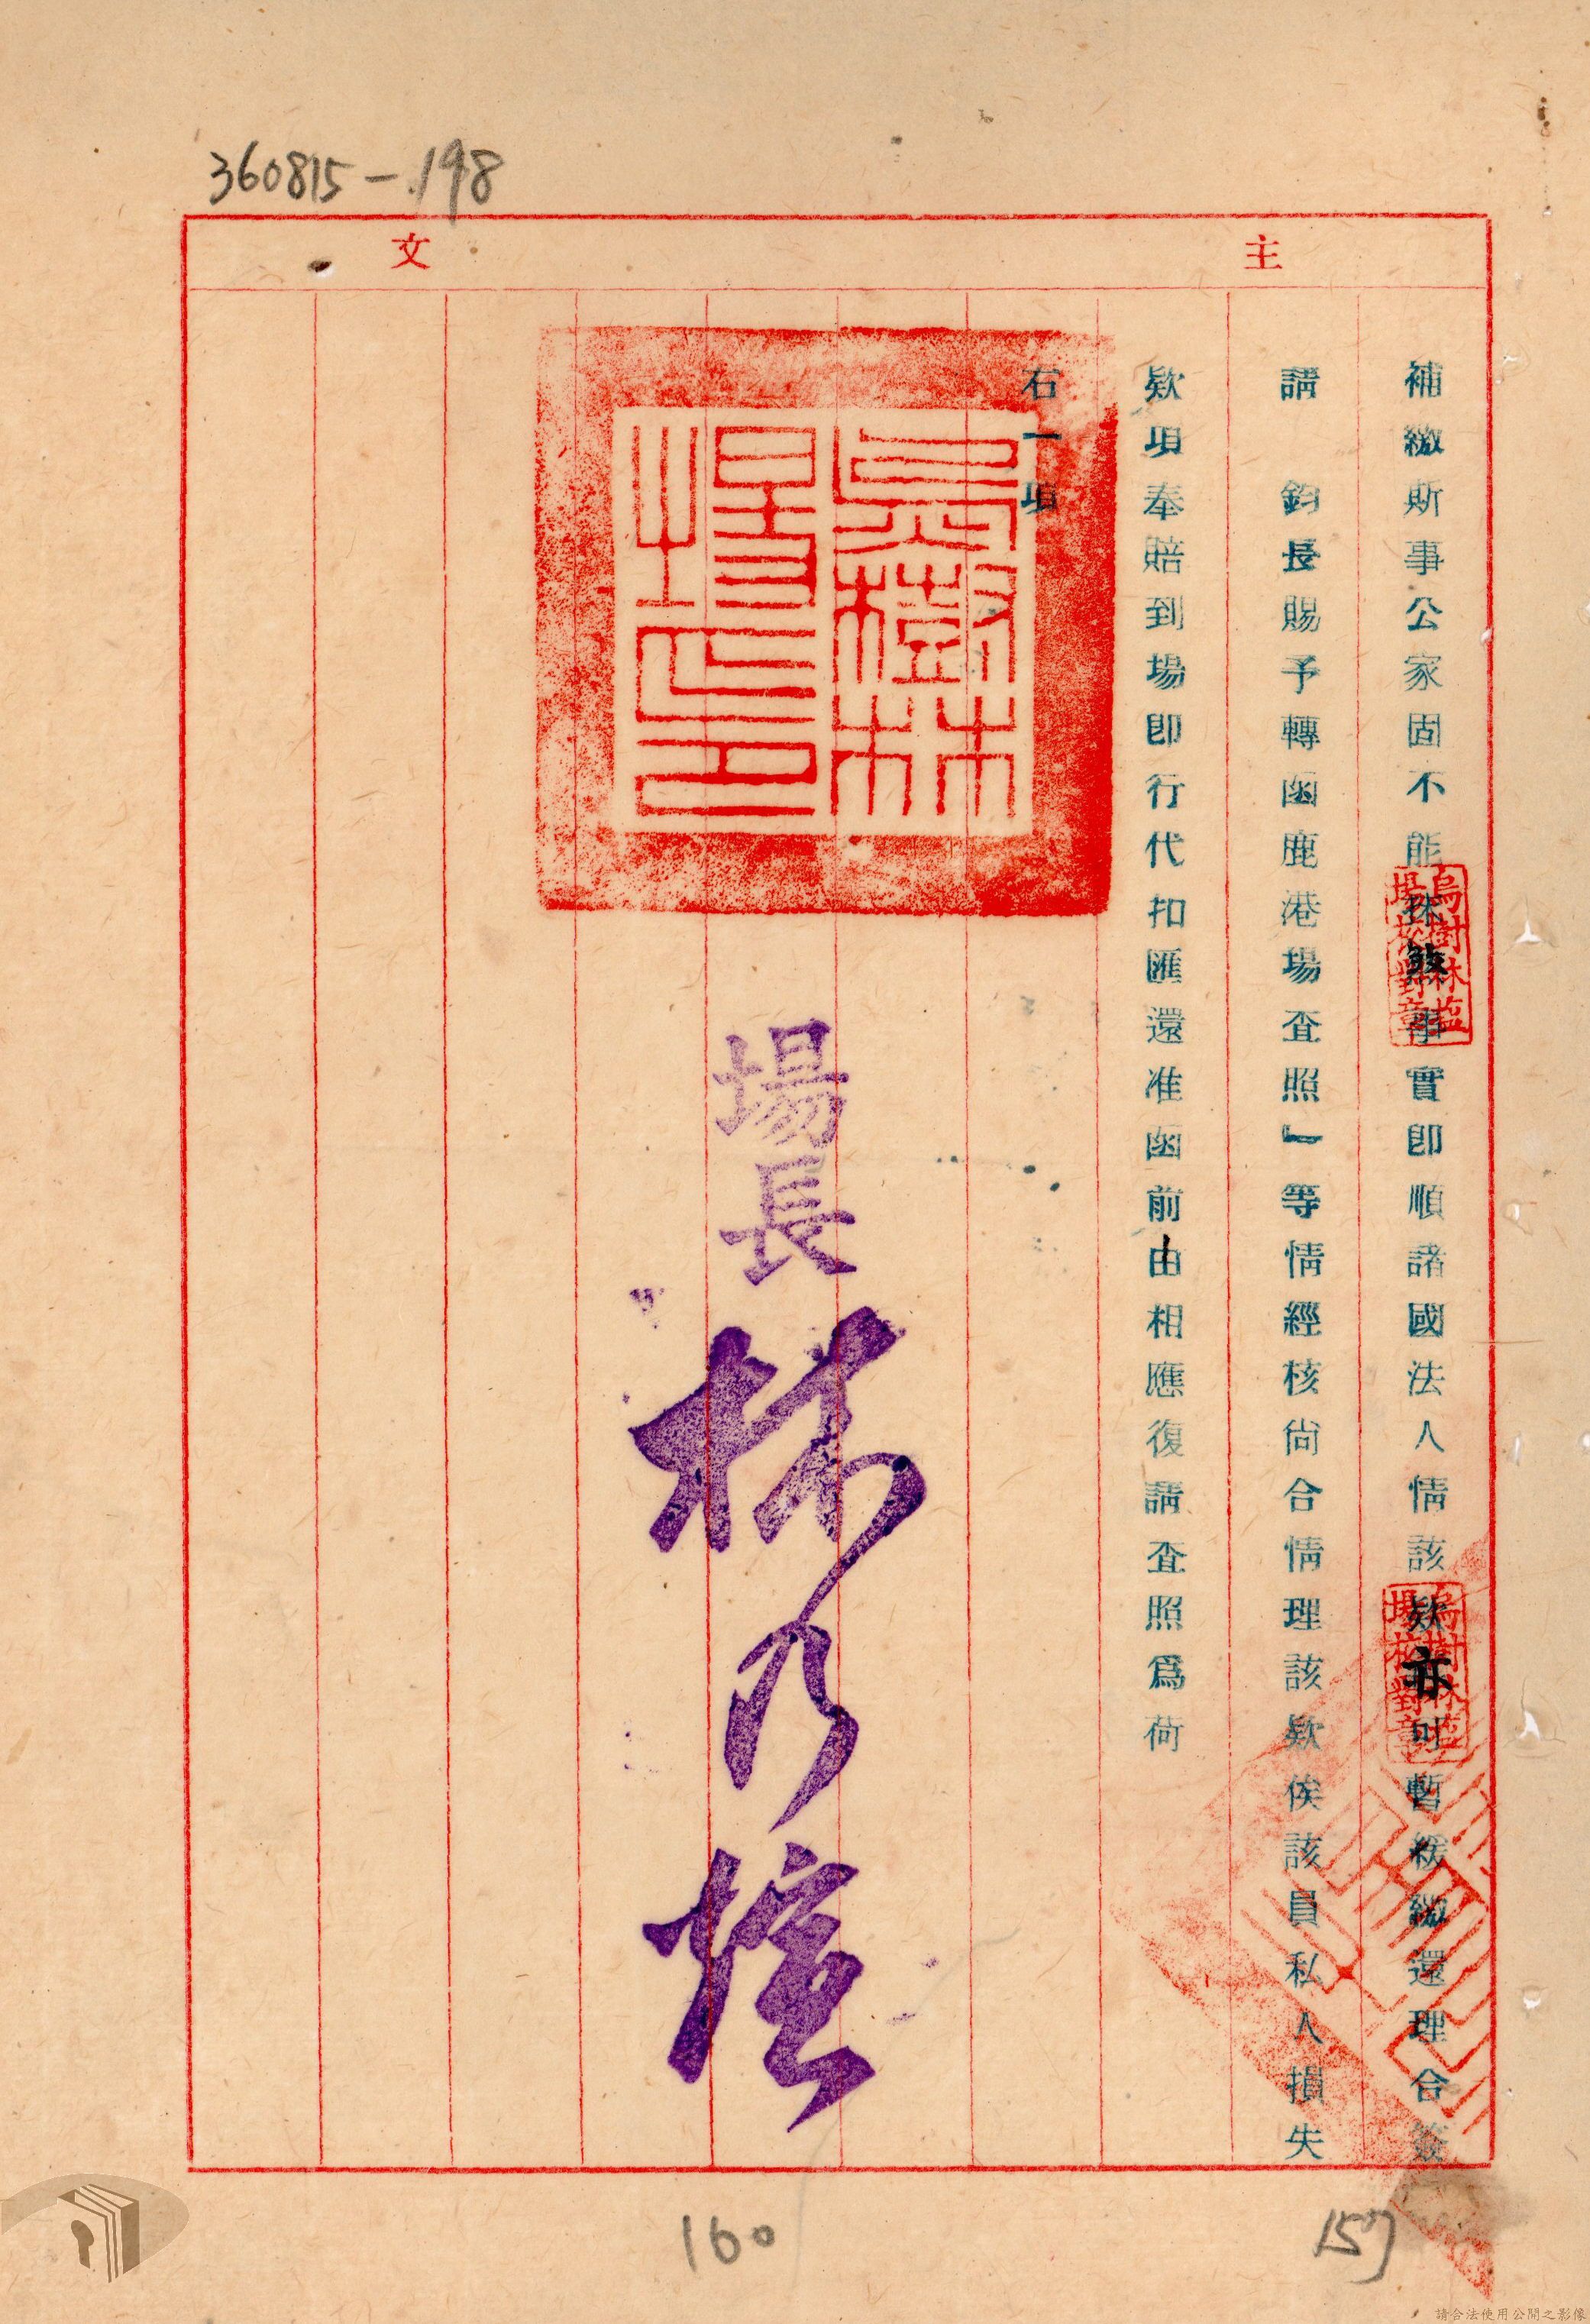 360815-198
主文
補繳斯事公家固不能抹煞事實即順諸國法人情該欵亦可暫緩繳還理合簽
請　鈞長賜予轉函鹿港場查照』等情經核尙合情理該欵俟該員私人損失
欵項奉賠到場即行代扣匯還准函前由相應復請查照爲荷
右一項
烏樹林場之印
場長林乃
烏樹林塩場校對章
烏樹林塩場校對章
160
157
請合法使用公開之影像